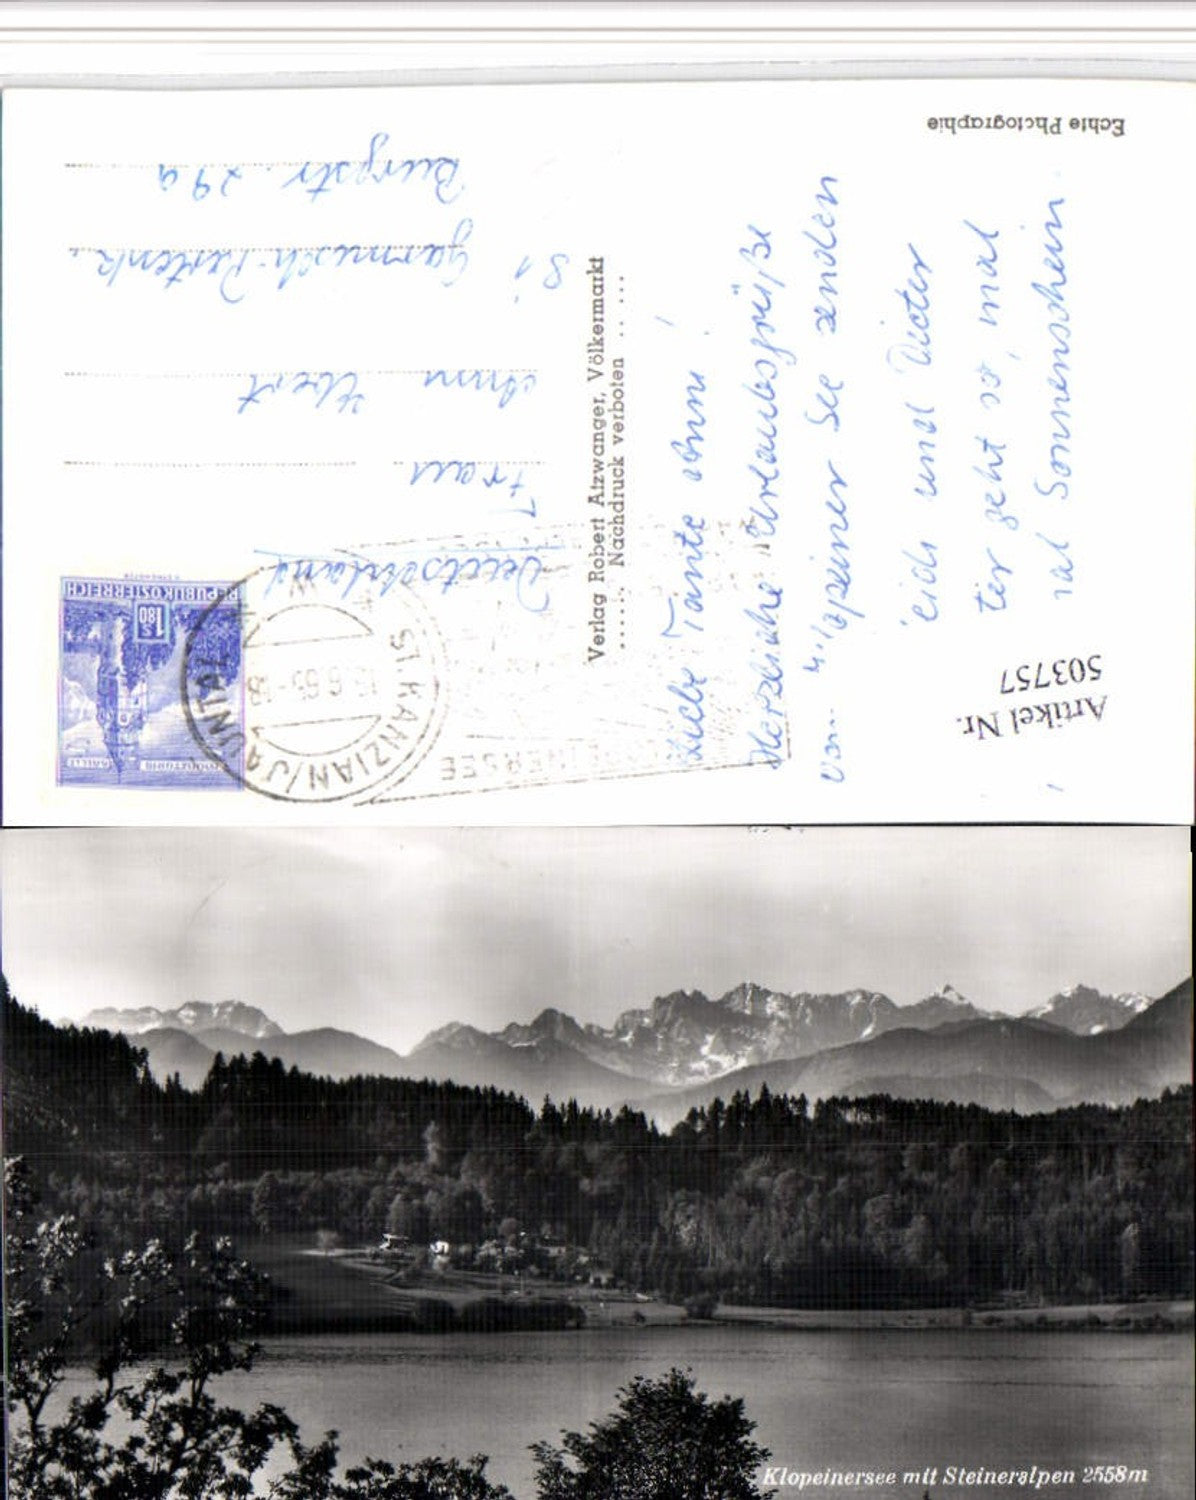 Echte Photographie
Liebe Tante Anni!
Herzliche Urlaubsgrüße
vom Klopeiner See senden
und Dieter
geht es, mal
mal Sonnenschein.
Artikel Nr.
503757
Verlag Robert Atzwanger, Völkermarkt
Nachdruck verboten
REPUBLIK ÖSTERREICH
S 1.80
ST. KANZIAN/JAUNTAL
KLOPEINERSEE
Deutschland
Frau
Anni
81 Garmisch-Partenk.
Burgstr. 29a
Klopeinersee mit Steineralpen 2558m